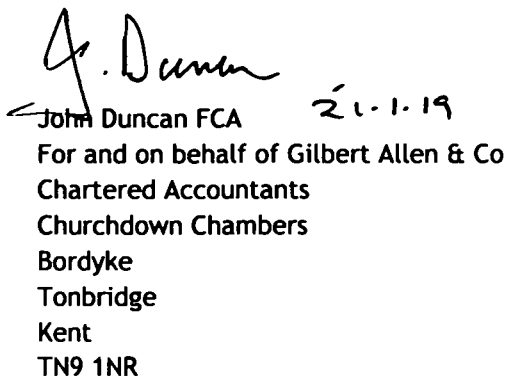 J. Duncan
John Duncan FCA 21.1.19
For and on behalf of Gilbert Allen & Co
Chartered Accountants
Churchdown Chambers
Bordyke
Tonbridge
Kent
TN9 1NR